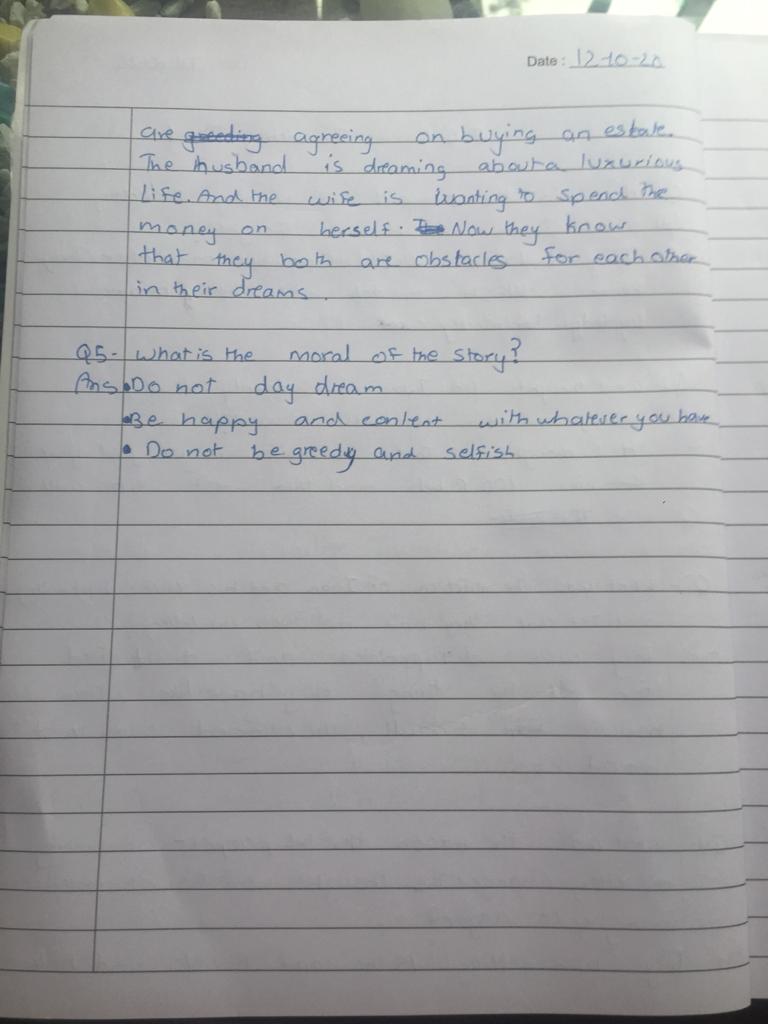 Date : 12-10-20
are greeding agreeing on buying an estate.
The husband is dreaming about a luxurious
life. And the wife is wanting to spend the
money on herself. Now they know
that they both are obstacles for each other
in their dreams.
Q5- What is the moral of the story?
Ans •Do not day dream
•Be happy and content with whatever you have
• Do not be greedy and selfish